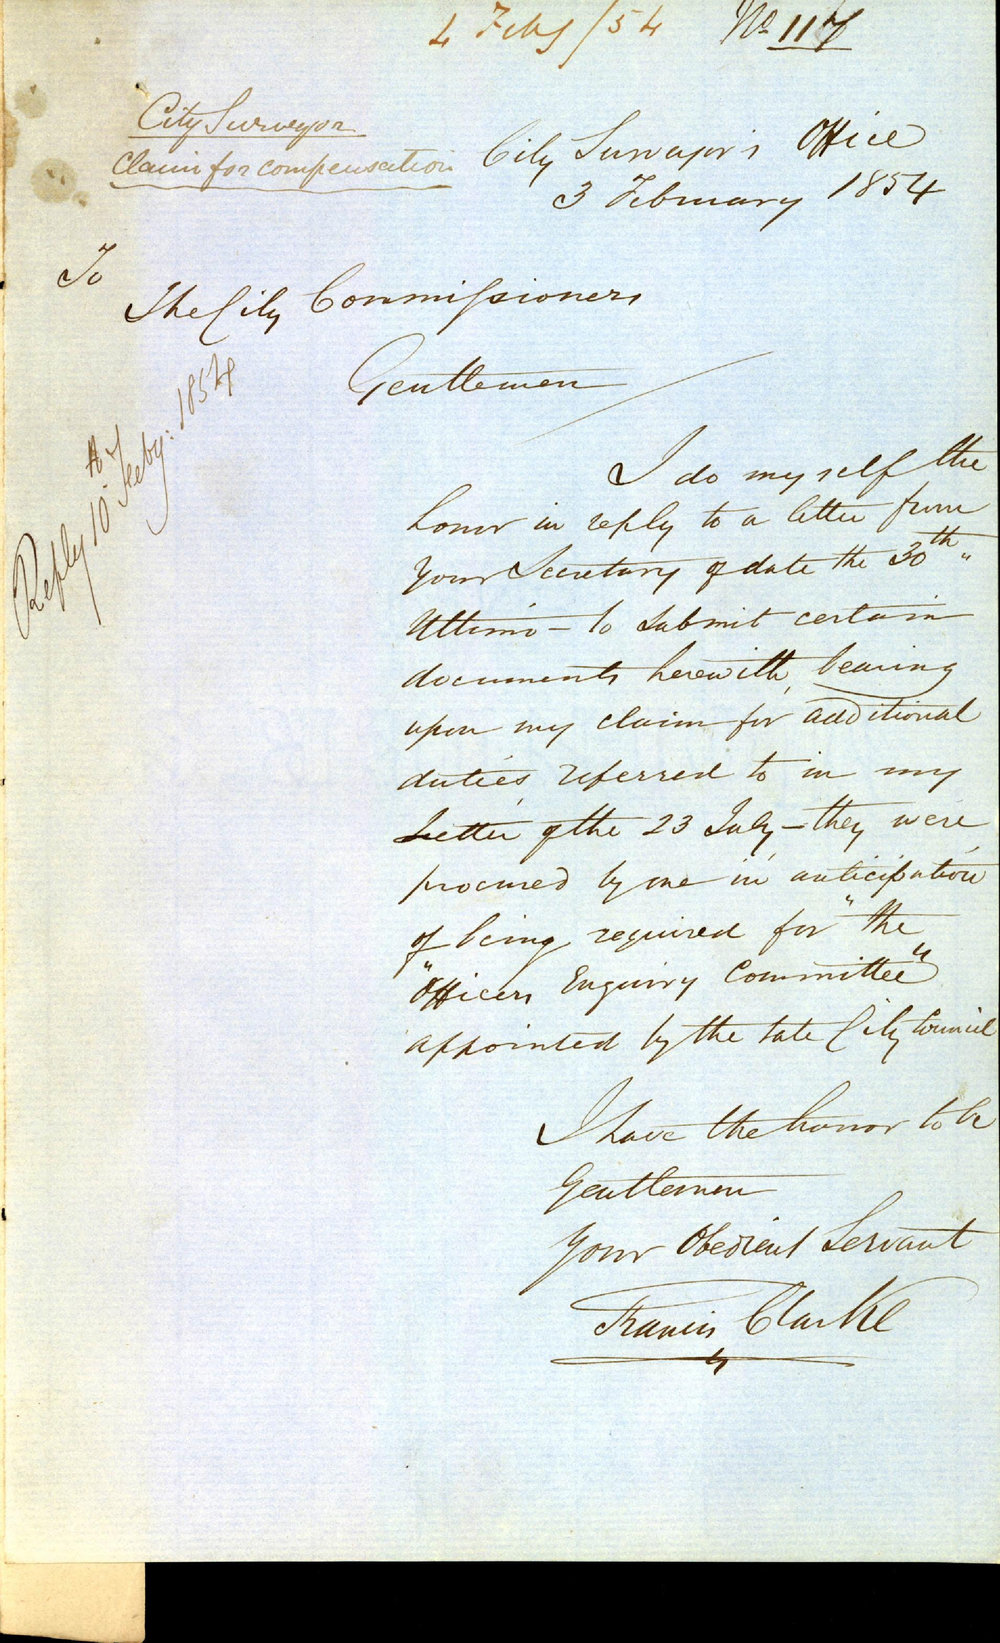 4 Feby/54 No 117
City Surveyor
Claim for compensation
City Surveyor's Office
3 February 1854
To
The City Commissioners
Gentlemen
Reply 10 Feby: 1854
I do myself the
honor in reply to a letter from
your Secretary of date the 30th
Ultimo - to submit certain
documents herewith, bearing
upon my claim for additional
duties referred to in my
Letter of the 23 July - they were
procured by me in anticipation
of being required for "the
"Officers Enquiry Committee"
appointed by the late City Council
I have the honor to be
Gentlemen
Your Obedient Servant
Francis Clarke